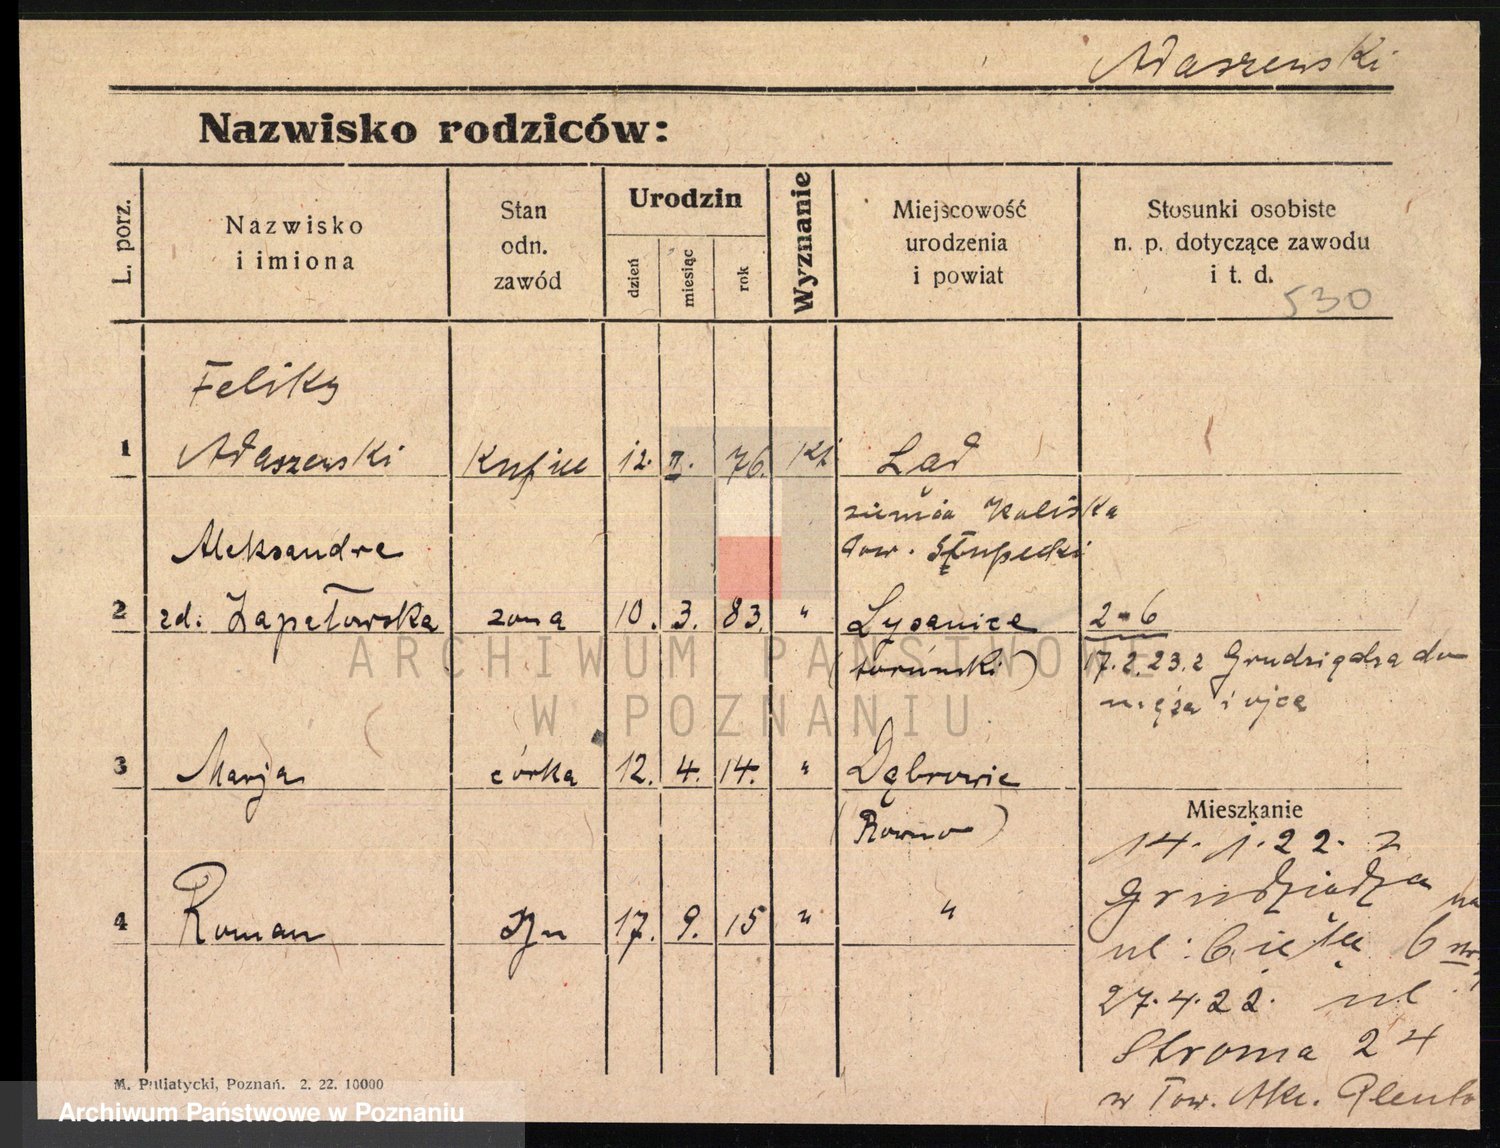 Adaszewski
Nazwisko rodziców:
L. porz.
Nazwisko
i imiona
Stan
odn.
zawód
Urodzin
dzień
miesiąc
rok
Wyznanie
Miejscowość
urodzenia
i powiat
Stosunki osobiste
n. p. dotyczące zawodu
i t. d.
530
Feliks
1 Adaszewski Kupiec 12. II. 76. Kt. Ląd
ziemia Kaliska
pow. Słupecki
Aleksandra
2 zd. Zapałowska żona 10. 3. 83. " Łysanice 2-6
(toruński) 17.2.23. z Grudziądza do
męża i ojca
3 Marja córka 12. 4. 14. " Dąbrowie
(Rowno)
Mieszkanie
14.1.22. z
Grudziądza na
4 Roman syn 17. 9. 15 " "
ul. 6
27.4.22. ul
Stroma 24
w Tow. Akc.
M. Putiatycki, Poznań. 2. 22. 10000
ARCHIWUM PAŃSTWOWE
W POZNANIU
Archiwum Państwowe w Poznaniu